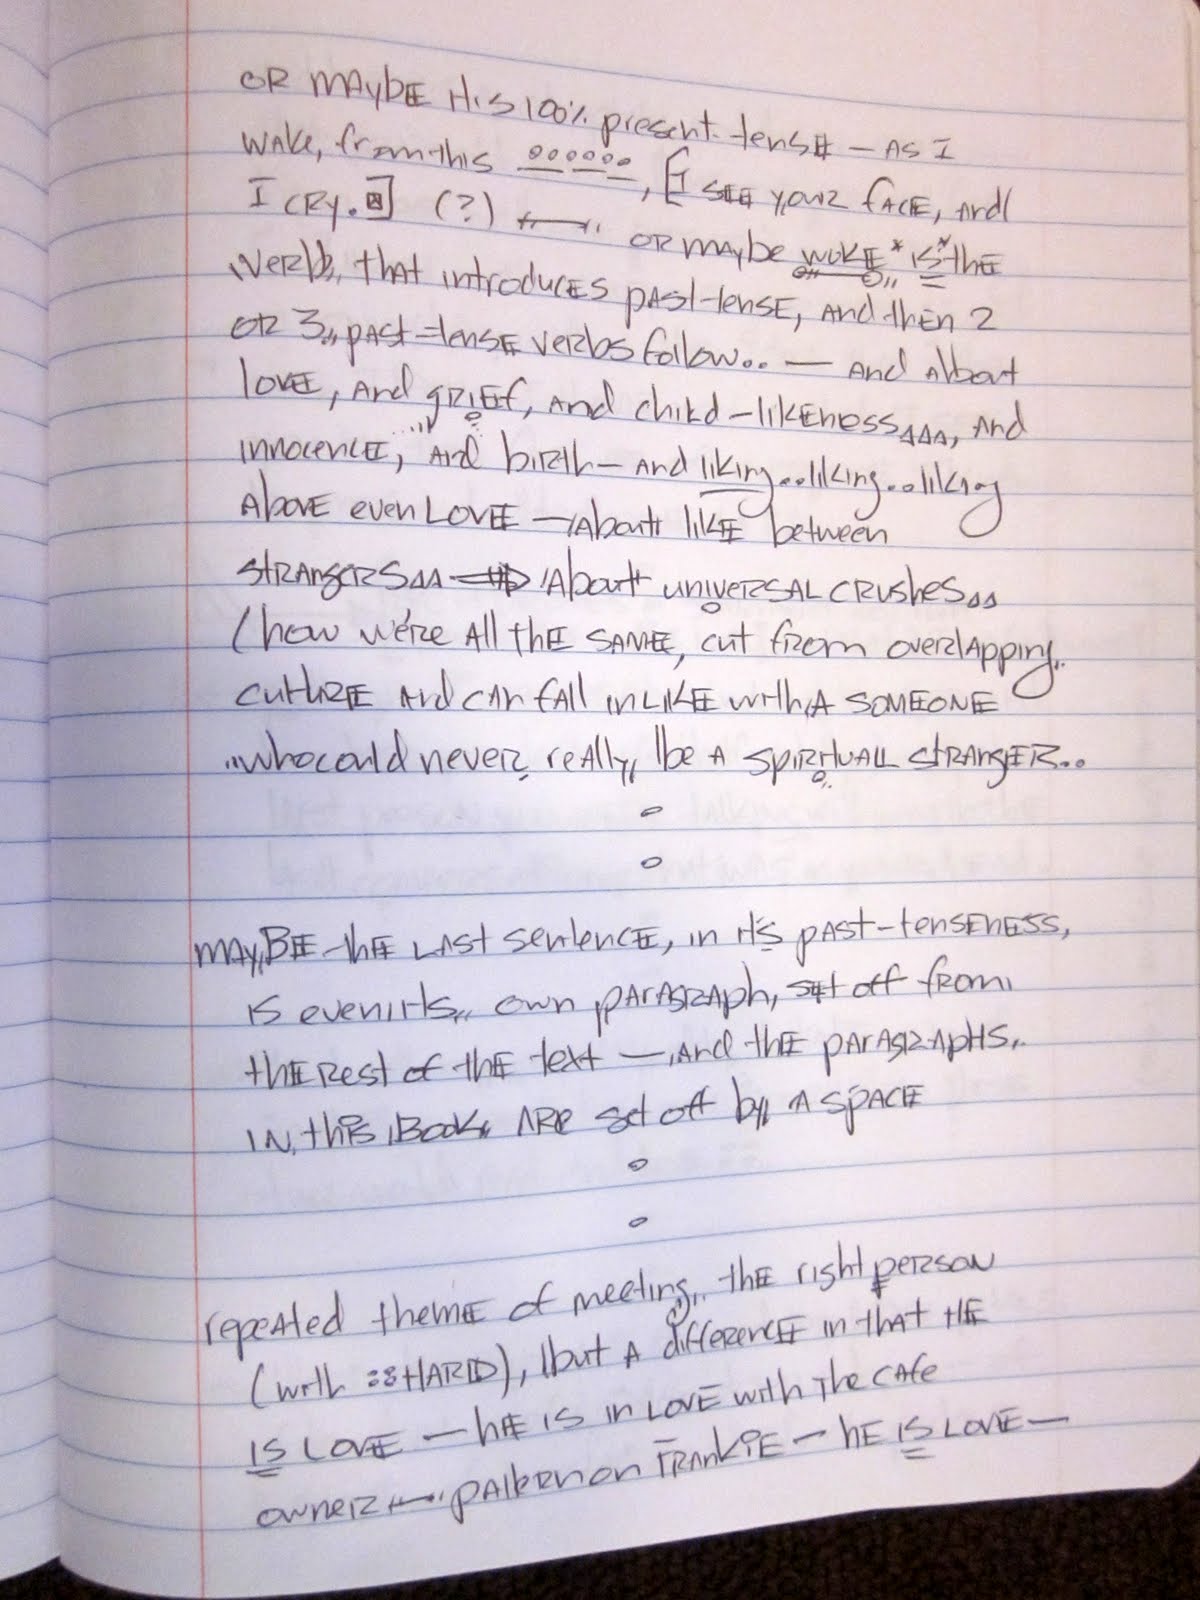 OR MAYBE it's 100% present-tense — AS I
WAKE, from this °°°°°°, [I SEE YOUR FACE, AND
I CRY.] (?) ⟵ OR MAYBE WOKE* IS* THE
VERB, that introduces PAST-tense, And then 2
OR 3,, PAST-tense verbs follow.. — And About
LOVE, And GRIEF, And child-likeness, And
innocence, And birth — And liking..liking..liking
Above even LOVE — About LIKE between
STRANGERS — About UNIVERSAL CRUSHES
(how we're All the SAME, cut from overlapping,,
CULTURE And can fall in LIKE with A SOMEONE
,,who could never, really, be A SPIRITUAL STRANGER..
o
o
MAYBE the LAST sentence, in it's past-tenseness,
IS even it's,, own PARAGRAPH, set off from
the REST of the text — And the PARAGRAPHS,,
IN this BOOK, ARE set off by A SPACE
o
o
repeated theme of meeting,, the right person
(with HARD), but A difference in that HE
IS LOVE — HE IS in LOVE with The CAFE
OWNER ⟵ on FRANKIE — HE IS LOVE —